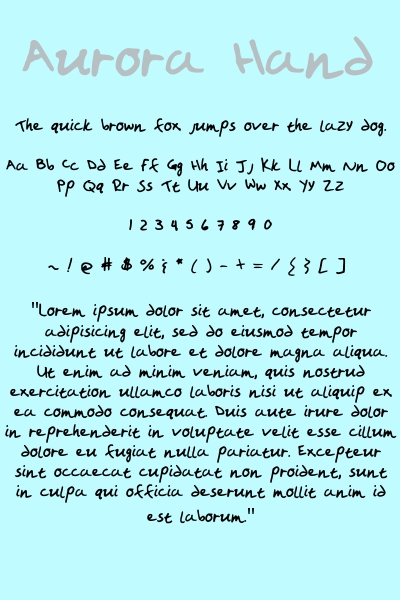 Aurora Hand
The quick brown fox jumps over the lazy dog.
Aa Bb Cc Dd Ee Ff Gg Hh Ii Jj Kk Ll Mm Nn Oo
Pp Qq Rr Ss Tt Uu Vv Ww Xx Yy Zz
1 2 3 4 5 6 7 8 9 0
~ ! @ # $ % & * ( ) - + = / { } [ ]
"Lorem ipsum dolor sit amet, consectetur
adipisicing elit, sed do eiusmod tempor
incididunt ut labore et dolore magna aliqua.
Ut enim ad minim veniam, quis nostrud
exercitation ullamco laboris nisi ut aliquip ex
ea commodo consequat. Duis aute irure dolor
in reprehenderit in voluptate velit esse cillum
dolore eu fugiat nulla pariatur. Excepteur
sint occaecat cupidatat non proident, sunt
in culpa qui officia deserunt mollit anim id
est laborum"